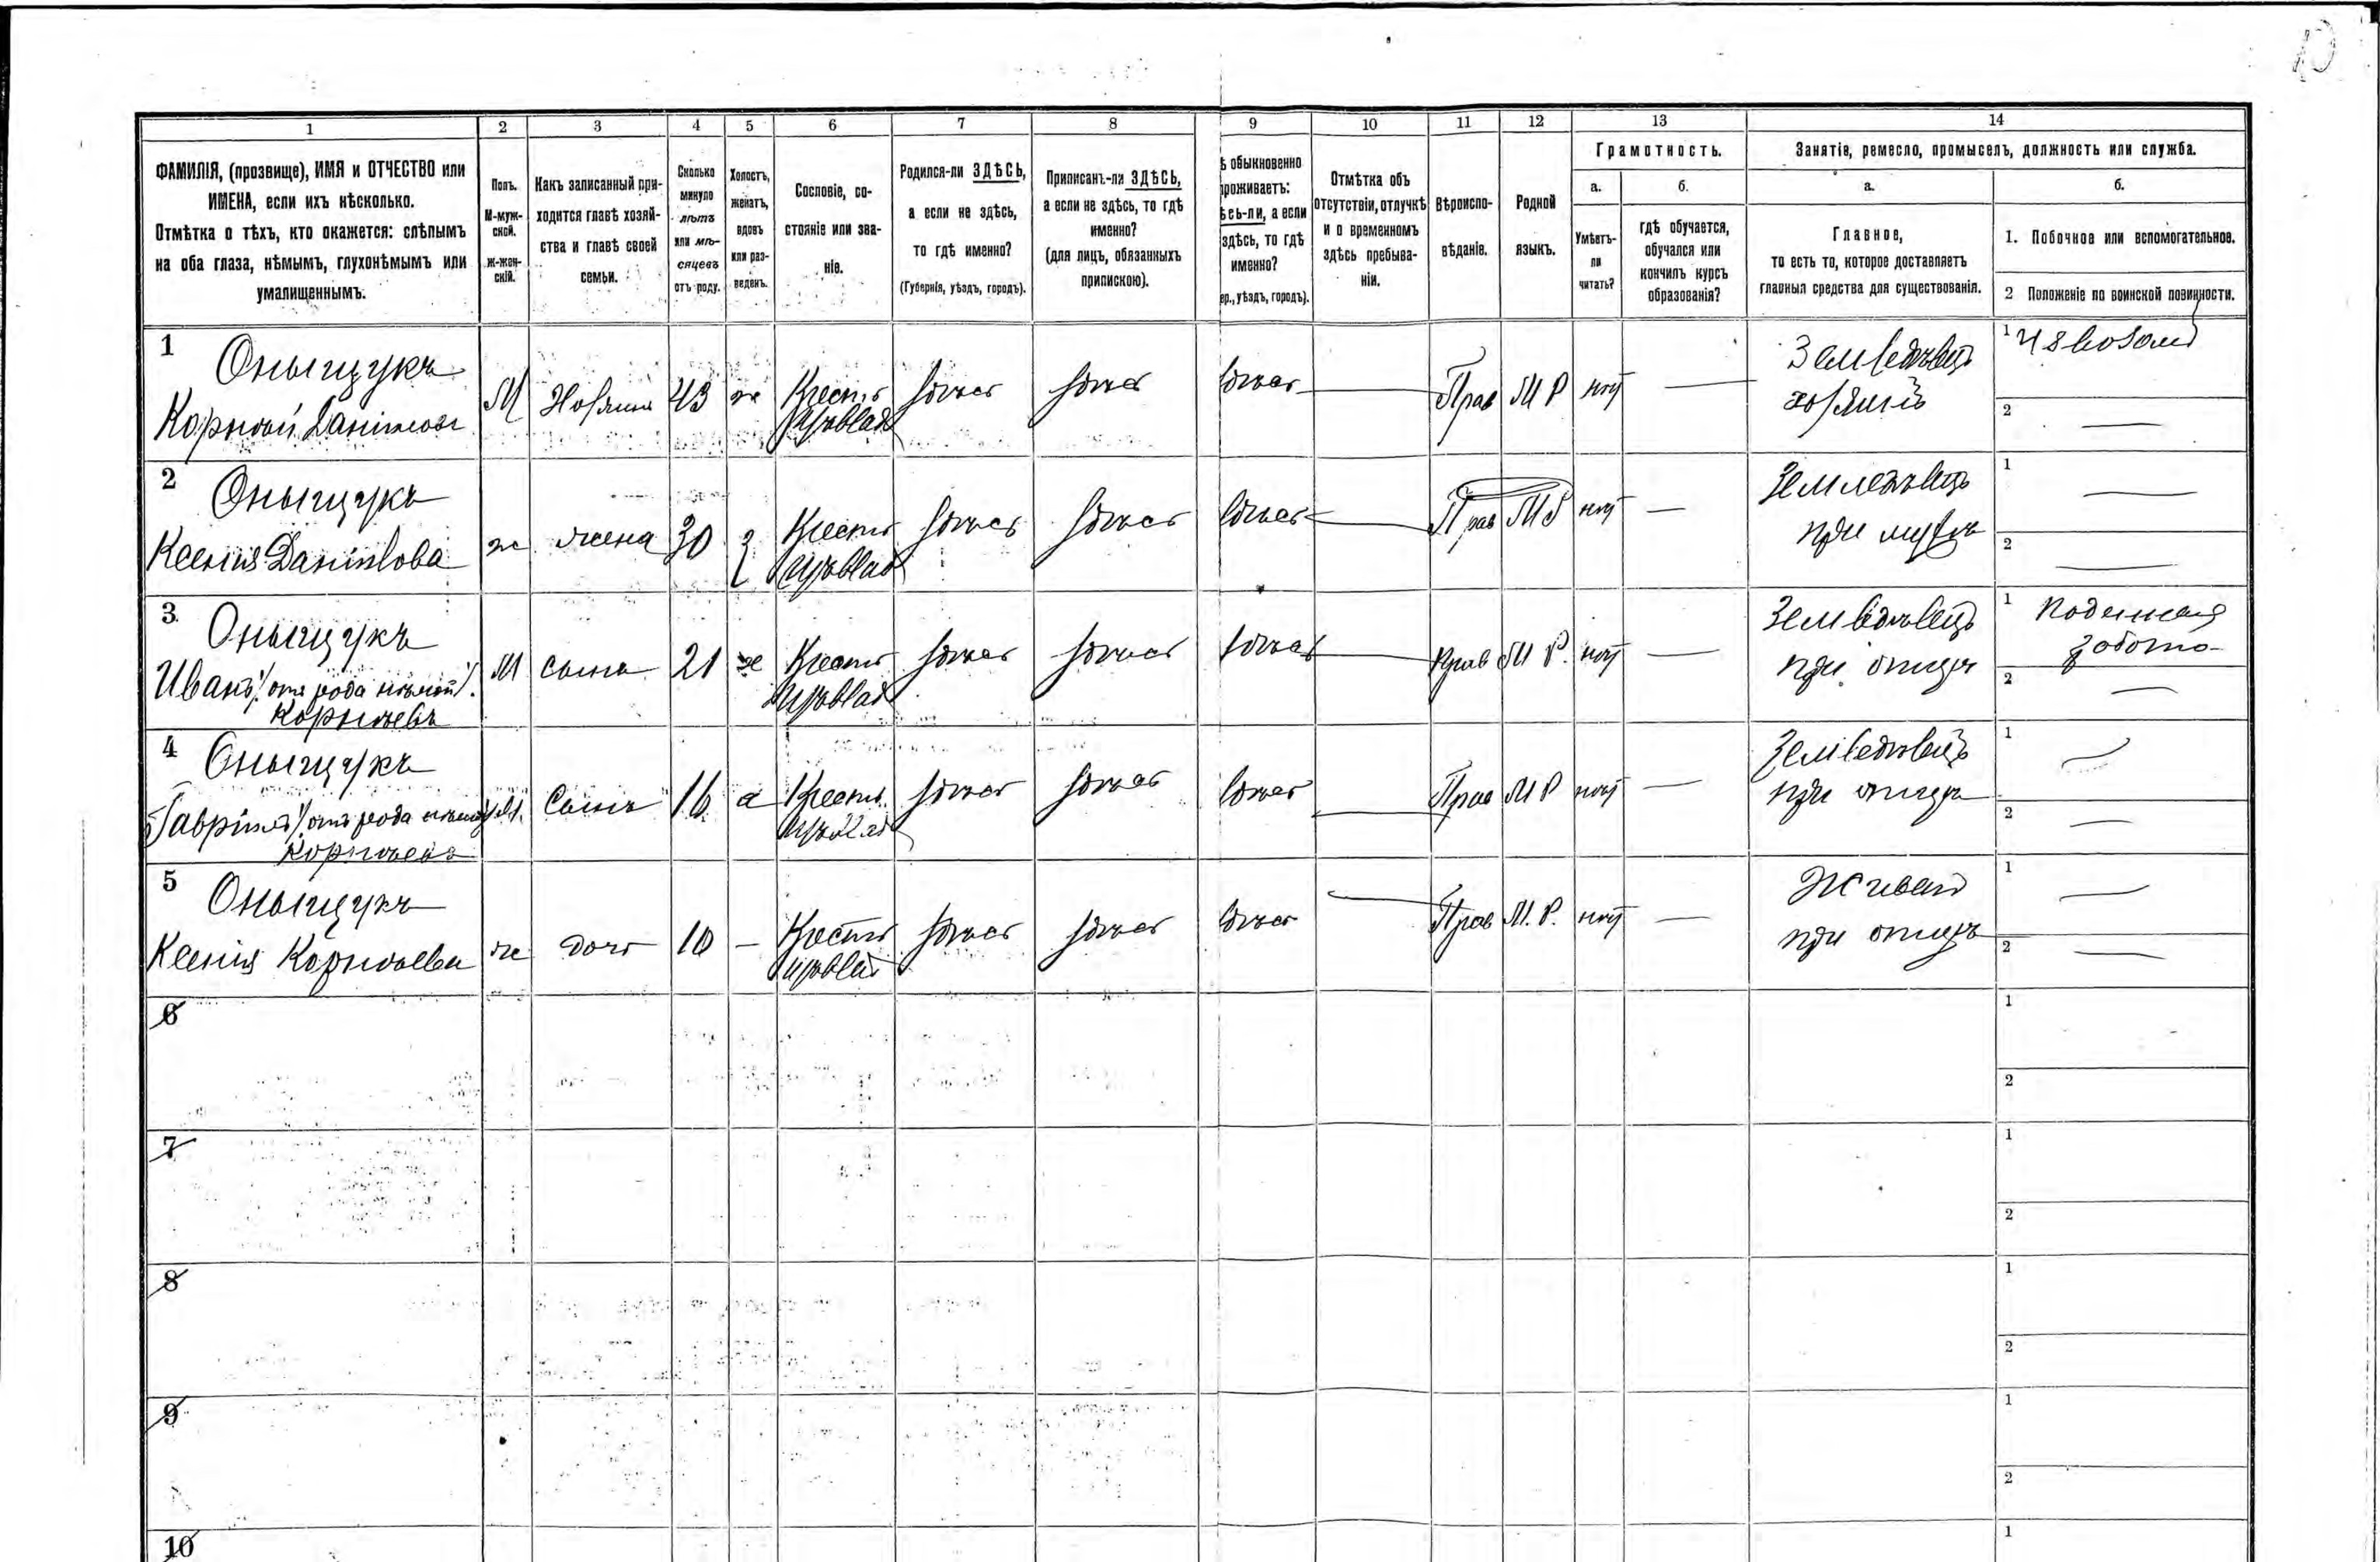 10
1 2 3 4 5 6 7 8 9 10 11 12 13 14
ФАМИЛІЯ, (прозвище), ИМЯ и ОТЧЕСТВО или
ИМЕНА, если ихъ нѣсколько.
Отмѣтка о тѣхъ, кто окажется: слѣпымъ
на оба глаза, нѣмымъ, глухонѣмымъ или
умалишеннымъ.
Полъ.
М-муж-
ской.
ж-жен-
скій.
Какъ записанный при-
ходится главѣ хозяй-
ства и главѣ своей
семьи.
Сколько
минуло
лѣтъ
или мѣ-
сяцевъ
отъ роду.
Холостъ,
женатъ,
вдовъ
или раз-
веденъ.
Сословіе, со-
стояніе или зва-
ніе.
Родился-ли ЗДѢСЬ,
а если не здѣсь,
то гдѣ именно?
(Губернія, уѣздъ, городъ).
Приписанъ-ли ЗДѢСЬ,
а если не здѣсь, то гдѣ
именно?
(для лицъ, обязанныхъ
припискою).
ѣ обыкновенно
роживаетъ:
ѣсь-ли, а если
здѣсь, то гдѣ
именно?
ер., уѣздъ, городъ).
Отмѣтка объ
отсутствіи, отлучкѣ
и о временномъ
здѣсь пребыва-
ніи.
Вѣроиспо-
вѣданіе.
Родной
языкъ.
Грамотность.
а.
Умѣетъ-
ли
читать?
б.
гдѣ обучается,
обучался или
кончилъ курсъ
образованія?
Занятіе, ремесло, промыселъ, должность или служба.
а.
Главное,
то есть то, которое доставляетъ
главныя средства для существованія.
б.
1. Побочное или вспомогательное.
2 Положеніе по воинской повинности.
1 Оныщукъ
Корній Даниловъ
М Хозяинъ 43 ж Крестъ здѣсь здѣсь здѣсь Прав М Р нѣт
хозяинъ
1 Извозом
2
2 Оныщукъ
Ксенія Данилова
ж жена 30 з Крестъ здѣсь здѣсь здѣсь Прав М Р нѣт
Земледѣлецъ
при мужѣ
1
2
3 Оныщукъ
Иванъ (отъ рода нѣмой).
Корніевъ
М сынъ 21 же Крестъ здѣсь здѣсь здѣсь Прав М Р. нѣт
при отцѣ
1 Поденная
работа
2
4 Оныщукъ
Гавріилъ (отъ рода нѣмой)
Корніевъ
М. Сынъ 16 Крестъ. здѣсь здѣсь здѣсь Прав М Р нѣт
при отцѣ
1
2
5 Оныщукъ
Ксенія Корніева
же дочь 10 — Крестъ здѣсь здѣсь здѣсь Прав М. Р. нѣт
при отцѣ
1
2
6
1
2
7
1
2
8
1
2
9
1
2
10
1